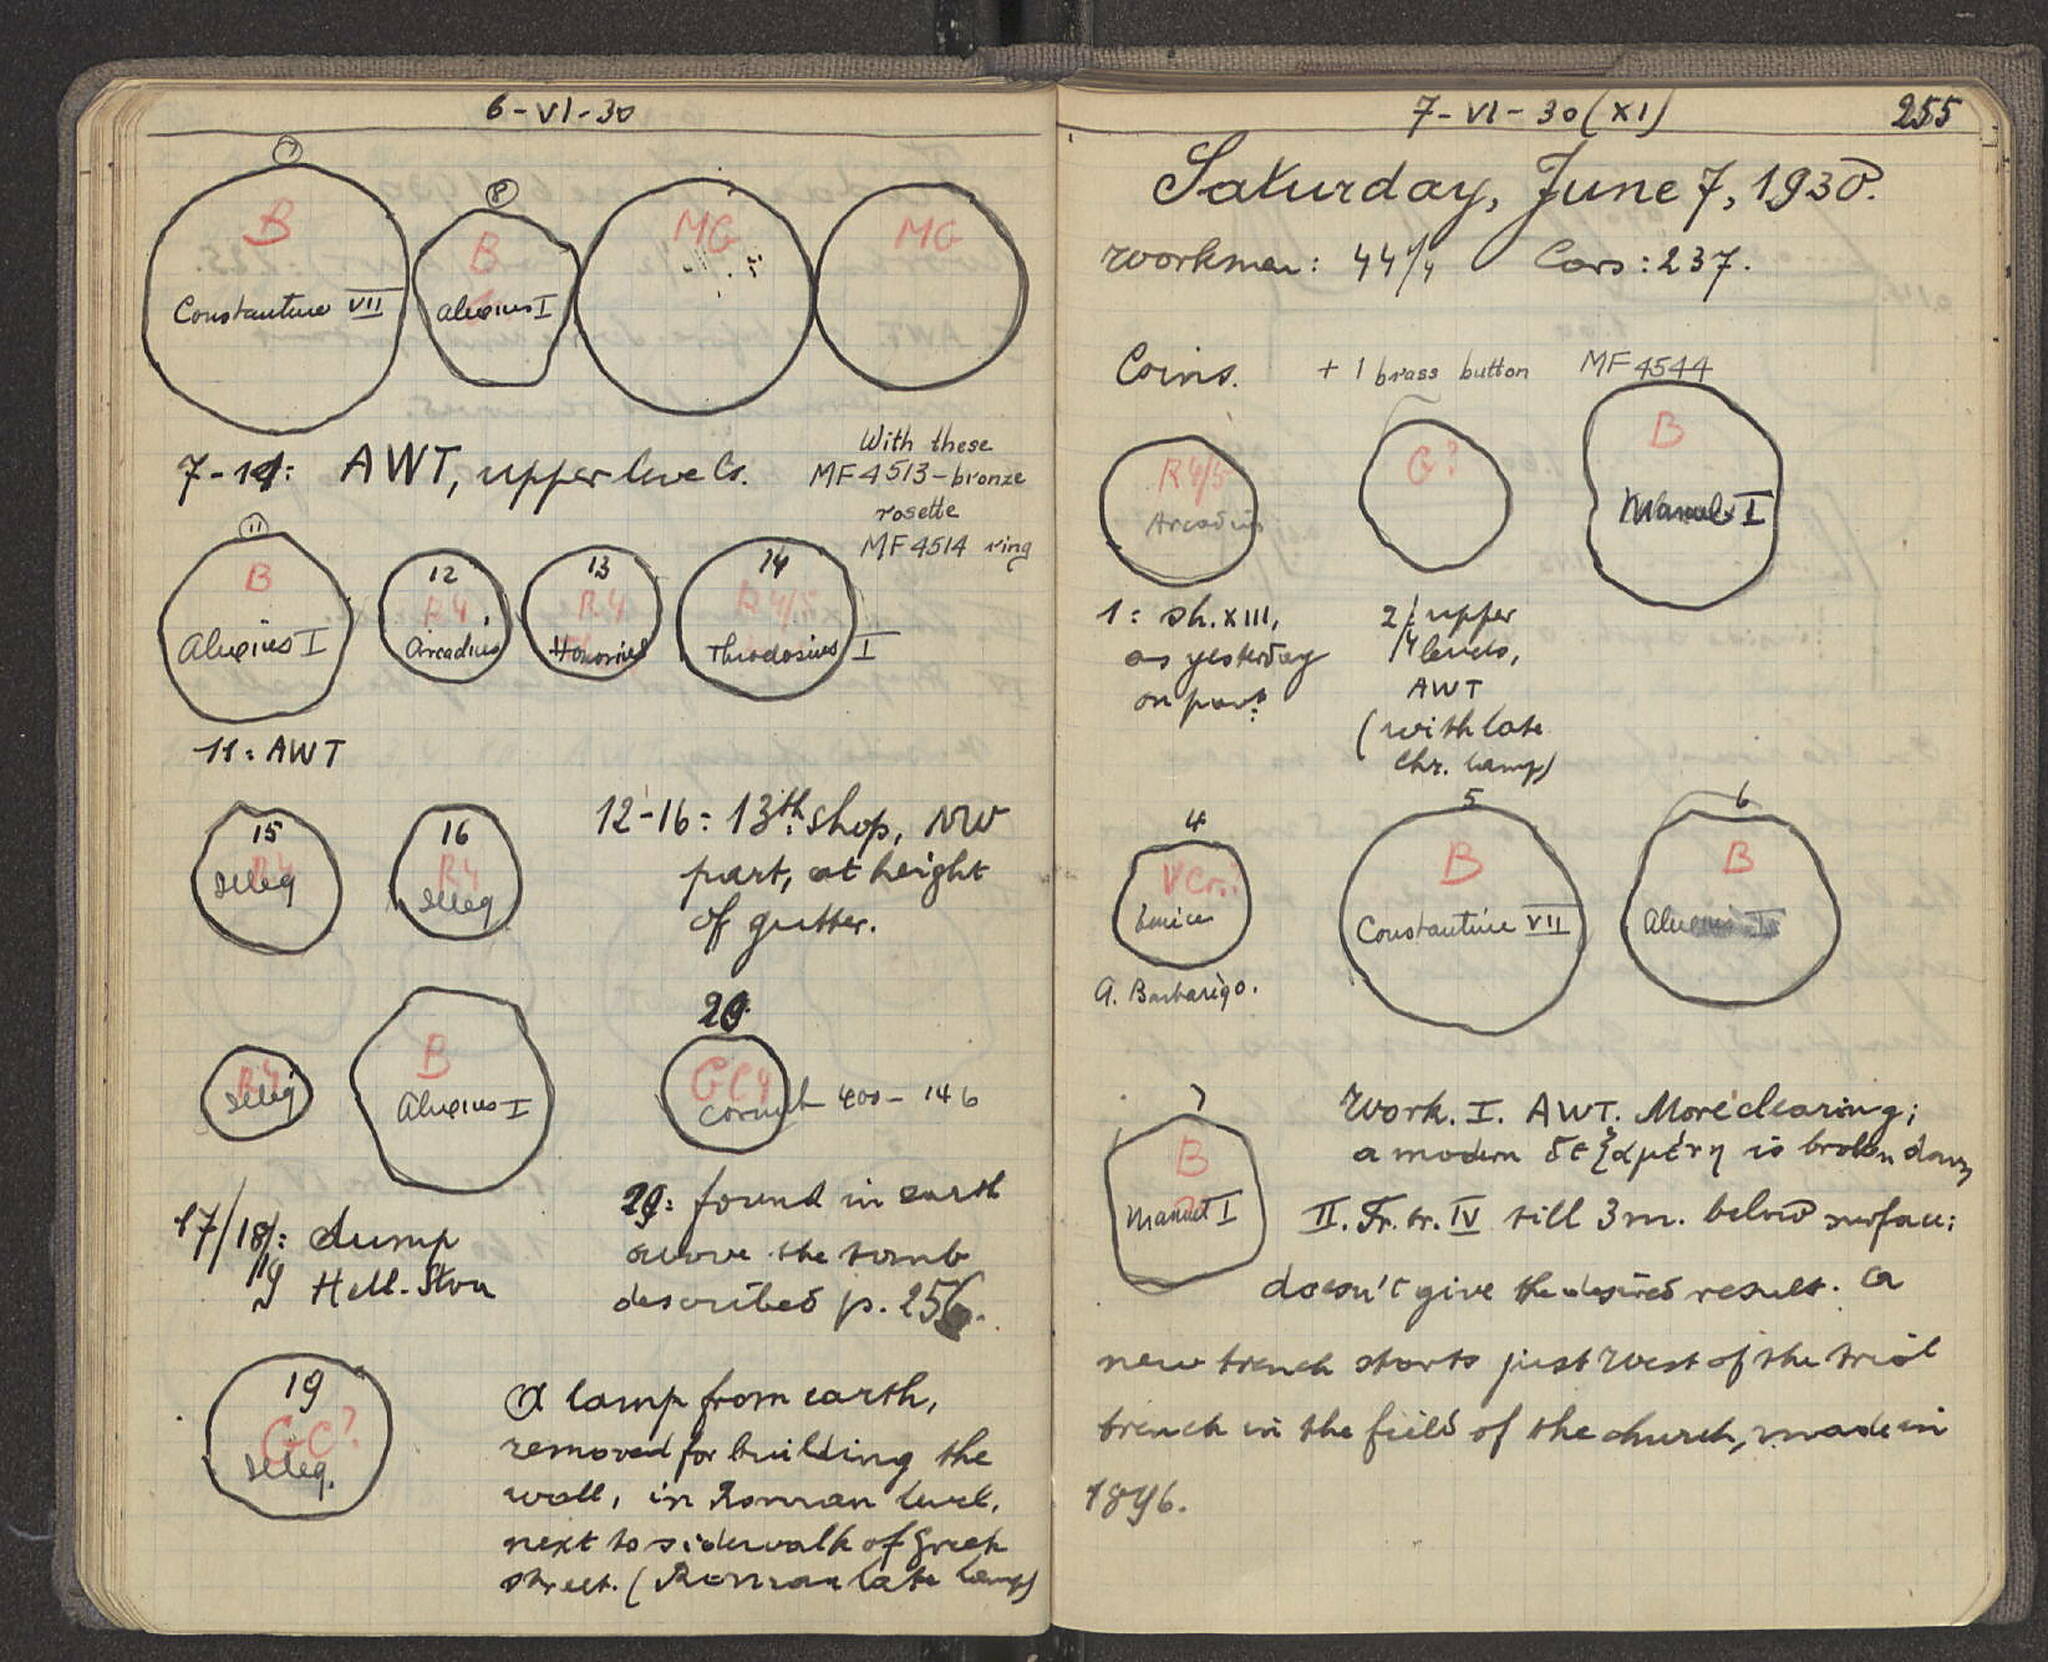 6-VI-30
7
B
Constantine VII
8
B
Alexius I
MG
MG
7-14: AWT, upper levels.
With these
MF 4513-bronze
rosette
MF 4514 ring
11
B
Alexius I
12
R4
Arcadius
13
R4
Honorius
14
R4/5
Theodosius I
11: AWT
15
R4
illeg
16
R4
illeg
12-16: 13th shop, NW
part, at height
of gutter.
R4
illeg
B
Alexius I
20
GC4
Corinth 400-146
17/18/: dump
/19 Hell. Stoa
20: found in earth
above the tomb
described p. 256.
19
GC?
illeg.
A lamp from earth,
removed for building the
wall, in Roman level,
next to sidewalk of Greek
street. (Roman late lamp)
7-VI-30 (XI)
255
Saturday, June 7, 1930.
Workmen: 44/4 Cars: 237.
Coins. + 1 brass button MF 4544
R4/5
Arcadius
G?
B
Manuel I
1: sh. XIII,
as yesterday
on part
2/ upper
/4 levels,
AWT
(with late
Chr. lamp)
4
VCr.?
Venice
A. Barbarigo.
5
B
Constantine VII
6
B
Alexius I
7
B
Manuel I
Work. I. AWT. More clearing;
a modern δεξαμένη is broken down
II. Tr. tr. IV till 3m. below surface:
doesn't give the desired result. A
new trench starts just West of the trial
trench in the field of the church, made in
1896.